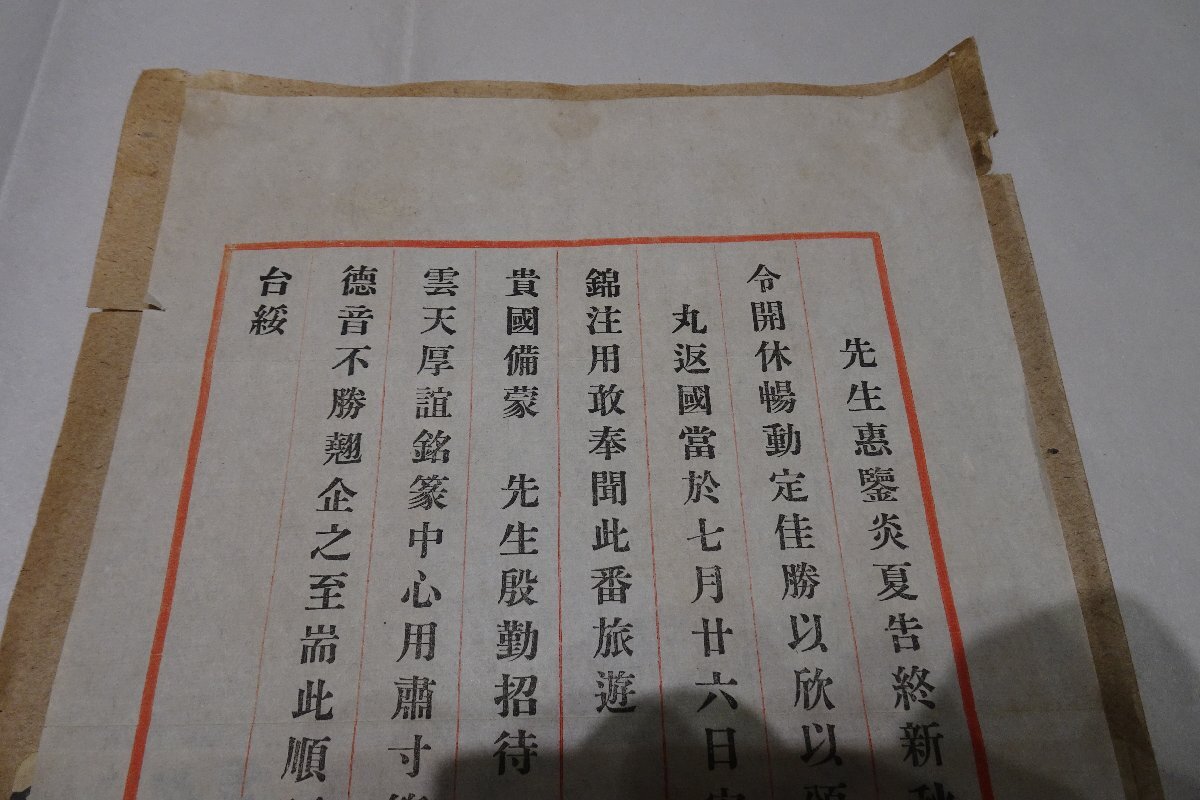 先生惠鑒炎夏告終新秋
令開休暢動定佳勝以欣以頌
丸返國當於七月廿六日安
錦注用敢奉聞此番旅遊
貴國備蒙　先生殷勤招待
雲天厚誼銘篆中心用肅寸
德音不勝翹企之至耑此順
台綏